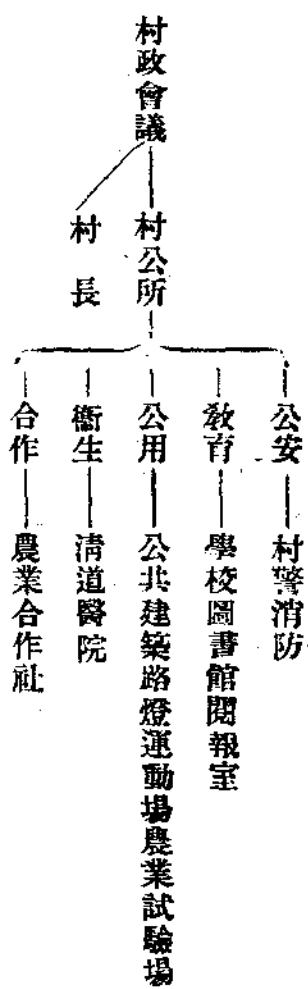 村政會議
村公所
村長
公安
村警消防
教育
學校圖書館閱報室
公用
公共建築路燈運動場農業試驗場
衛生
清道醫院
合作
農業合作社